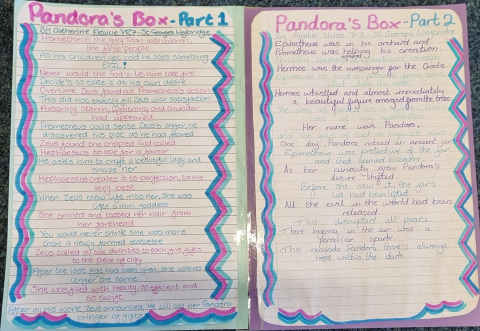 Pandora's Box - Part 1
Prometheus the grey titan with children,
the first people
As his children get cold he does something
Never would the Gods let him take fire
Decide's to take it as his own desire
Overtime Zeus found out Prometheus's action
This did not exactly fill Zeus with satisfaction
A roaring storm, lightning and thunder
had appeared
Prometheus could sense Zeus's anger, he
discovered his plot as he had feared
Zeus found the crippled God called
Hephaestus to ask for a favour
He asks him to craft a beautiful lady and
shape her
Hephaestus creates it to perfection, to his
very best
When Zeus blew life into her, she was
like a mini goddess
She smiled and tossed her hair from
her forehead
You would never think she was more
than a newly formed statuette
Zeus called all the divinities to each give gifts
to the piece of clay
After the last gift had been given, she was no
longer the same
She was filled with beauty, so efficient and
so swift
After all his work Zeus announced, 'We will call her Pandora
bringer of gifts'
Pandora's Box - Part 2
Epimetheus was in his orchard and
Prometheus was helping his creation
appeared
Hermes was the messenger for the Gods
Hermes whistled and almost immediately
a beautiful figure emerged from the trees
Her name was Pandora,
One day, Pandora noticed an ancient jar
Epimetheus was protective of the jar
and that seemed bizarre
As her curiosity grew Pandora's
desire shifted
Before she knew it the jar's
lid had been lifted
All the evil in the world had been
released
This disrupted all peace
There looping in the air was a
spark
This reminds Pandora there's always
hope within the dark